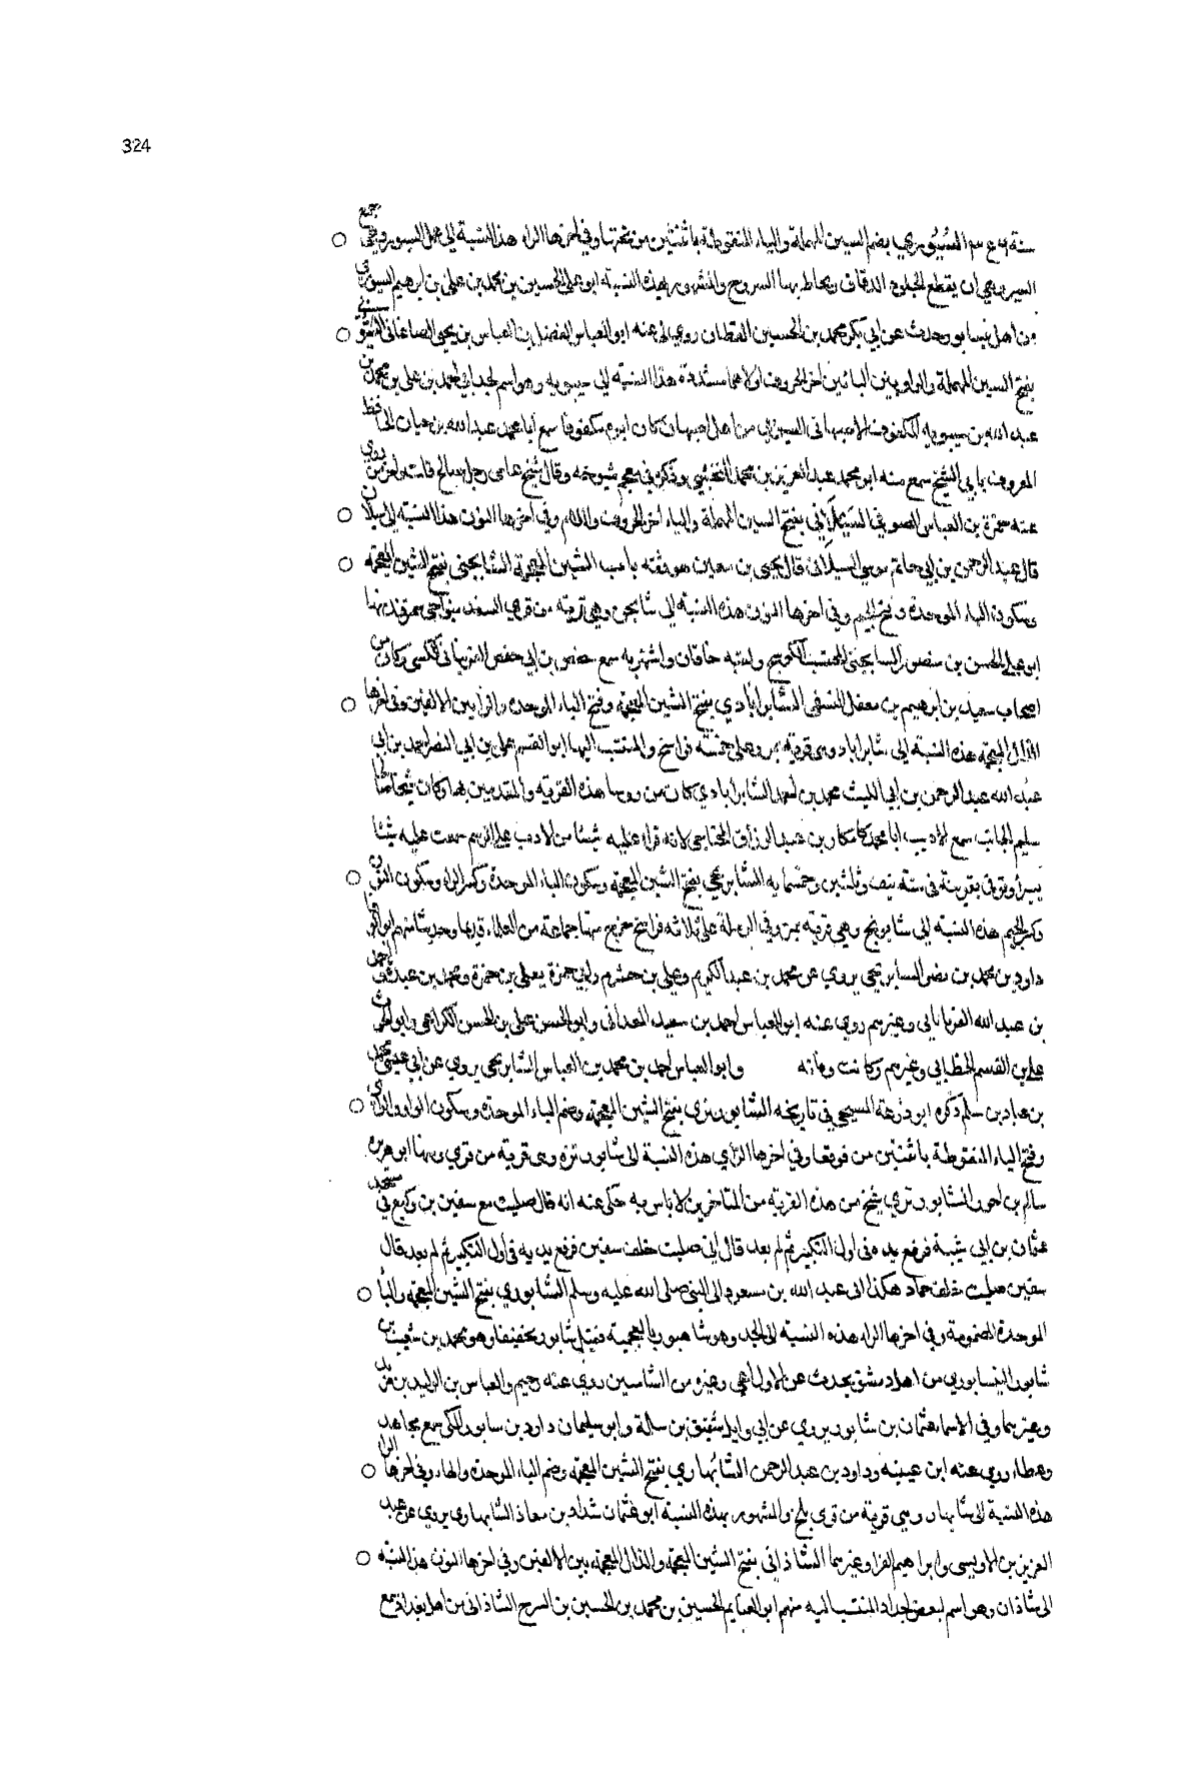 324
السُيُوري بضم السين المهملة والياء المنقوطة باثنتين من تحتها وفي اخرها الراء هذه النسبة الى عمل السيور وهي جمع
السير وهي ان يقطع الجلود الدقاق ويخاط بها السروج والمشهور بهذه النسبة ابو علي الحسين بن محمد بن علي بن ابرهيم السيوري
من اهل نيسابور حدث عن ابي بكر محمد بن الحسين القطان روى لي عنه ابو العباس الفضل بن العباس بن يحيى الصاغاني
بفتح السين المهملة والواو بين اليائين اخر الحروف اولاهما مشددة هذه النسبة الى سيبويه وهو اسم لجد ابي احمد بن علي بن محمد بن
عبد الله بن سيبويه المكفوف الاصبهاني السيبويي من اهل اصبهان كان ابوه مكفوفا سمع ابا محمد عبد الله بن حيان الحافظ
المعروف بابي الشيخ سمع منه ابو محمد عبد العزيز بن محمد النخشبي وذكره في معجم شيوخه وقال شيخ عامي رجل صالح
عنه حمزة بن العباس الصوفي السَيَلاني بفتح السين المهملة والياء اخر الحروف واللام وفي اخرها النون هذه النسبة الى سيلان
قال عبد الرحمن بن ابي حاتم موسى السيلاني قال يحيى بن معين هو ثقة باب الشين المعجمة الشابجني بفتح الشين المعجمة
وسكون الباء الموحدة وفتح الجيم وفي اخرها النون هذه النسبة الى شابجن وهي قرية من قرى السغد بنواحي سمرقند منها
ابو علي الحسن بن منصور السابجني المحتسب الكرميني ولقبه خاقان واشتهر به سمع حفص بن ابي حفص وكان من
اصحاب سعيد بن ابرهيم بن معقل النسفي الشابراباذي بفتح الشين المعجمة وفتح الباء الموحدة والرا بين الالفين وفي اخرها
الذال المعجمة هذه النسبة الى شابراباد وهي قرية بمرو على خمسة فراسخ والمنتسب اليها ابو القسم علي بن ابي النضر احمد بن ابي
عبد الله عبد الرحمن بن ابي الليث محمد بن احمد الشابراباذي كان من روسا هذه القرية والمقدمين بها وكان شيخا صالحا
سليم الجانب سمع الاديب ابا محمد كامكار بن عبد الرزاق المحتاجي لانه قراء عليه شيئا من الادب سمعت عليه شيئا
يسيرا وتوفي بقريته في سنة نيف وثلثين وخمسمايه الشابرنجي بفتح الشين المعجمة وسكون الباء الموحدة وكسر الراء وسكون النون
وكسر الجيم هذه النسبة الى شابرنج وهي قرية بمرو في الرملة على ثلاثه فراسخ خرج منها جماعة من العلماء قديما وحديثا منهم ابو
داود بن محمد بن نصر السابرنجي يروي عن محمد بن عبد الكريم وعلي بن خشرم وابي حمزة يعلى بن حمزة ومحمد بن عبد
بن عبد الله الفرياناني وغيرهم روى عنه ابو العباس احمد بن سعيد المعداني وابو الحسن علي بن الحسن الكراعي وابو
علي بن القسم الخطابي وغيرهم وكانت وفاته وابو العباس احمد بن محمد بن العباس الشابرنجي يروي عن ابي عيسى محمد
بن عباد بن سلم ذكره ابو ذرعة السبحي في تاريخه الشابورتزي بفتح الشين المعجمة وضم الباء الموحدة وسكون الواو والراء
وفتح التاء المنقوطة باثنتين من فوقها وفي اخرها الزاي هذه النسبة الى شابورتزه وهي قرية من قرى
سالم بن احور الشابورتزي شيخ من هذه القرية من المتاخرين لا باس به حكى عنه انه قال صليت مع سفين بن وكيع في مسجد
عثمان بن ابي شيبة فرفع يده في اول التكبير ثم لم يعد قال اني صليت خلف سفين فرفع يديه في اول التكبير ثم لم يعد قال
سفين صليت خلف حماد هكذا الى عبد الله بن مسعود الى النبي صلى الله عليه وسلم الشابوري بفتح الشين المعجمة والبا
الموحدة المضمومة وفي اخرها الراء هذه النسبة الى الجد وهو شاهبور بالعجمية فقيل شابور تخفيفا وهو محمد بن شعيب بن
شابور النيسابوري من اهل دمشق يحدث عن الاوزاعي وغيره من الشاميين روى عنه دحيم والعباس بن الوليد بن مزيد
وغيرهما وفي الاسما عثمان بن شابور يروي عن ابي وايل شقيق بن سلمة وابو سليمان داود بن سابور المكي سمع مجاهد
وعطاء روى عنه ابن عيينه وداود بن عبد الرحمن الشابُهاري بفتح الشين المعجمة وضم الباء الموحدة والهاء وفي اخرها الراء
هذه النسبة الى شابهار وهي قرية من قرى بلخ والمشهور بهذه النسبة ابو عثمان شداد بن معاذ الشابهاري يروي عن عبد
العزيز بن الاويسي وابراهيم الفرا وغيرهما الشاذاني بفتح الشين المعجمة والذال المعجمة بين الالفين وفي اخرها النون هذه النسبة
الى شاذان وهو اسم لبعض اجداد المنتسب اليه منهم ابو الغنايم الحسين بن محمد بن الحسين بن السرج الشاذاني من اهل بغداد سمع